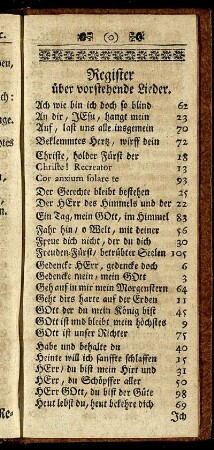 (o)
Register
über vorstehende Lieder.
Ach wie bin ich doch so blind 62
An dir, JEsu, hangt mein 23
Auf, last uns alle insgemein 70
Beklemmtes Hertz, wirff dein 72
Christe, holder Fürst der 18
Christe! Recreator 13
Cor anxium solare te 93
Der Gerechte bleibt bestehen 25
Der HErr des Himmels und der 22
Ein Tag, mein GOtt, im Himmel 83
Fahr hin, o Welt, mit deiner 56
Freue dich nicht, der du dich 30
Freuden-Fürst, betrübter Seelen 105
Gedencke HErr, gedencke doch 6
Gedencke mein, mein GOtt 3
Geh auf in mir mein Morgenstern 64
Geht dirs harte auf der Erden 11
GOtt der du mein König bist 45
GOtt ist und bleibt mein höchstes 9
GOtt ist unser Richter 75
Habe und behalte du 40
Heinte will ich sanffte schlaffen 15
HErr, du bist mein Hirt und 31
HErr, du Schöpffer aller 50
HErr GOtt, du bist der Güte 98
Heut lebst du, heut bekehre dich 69
Ich